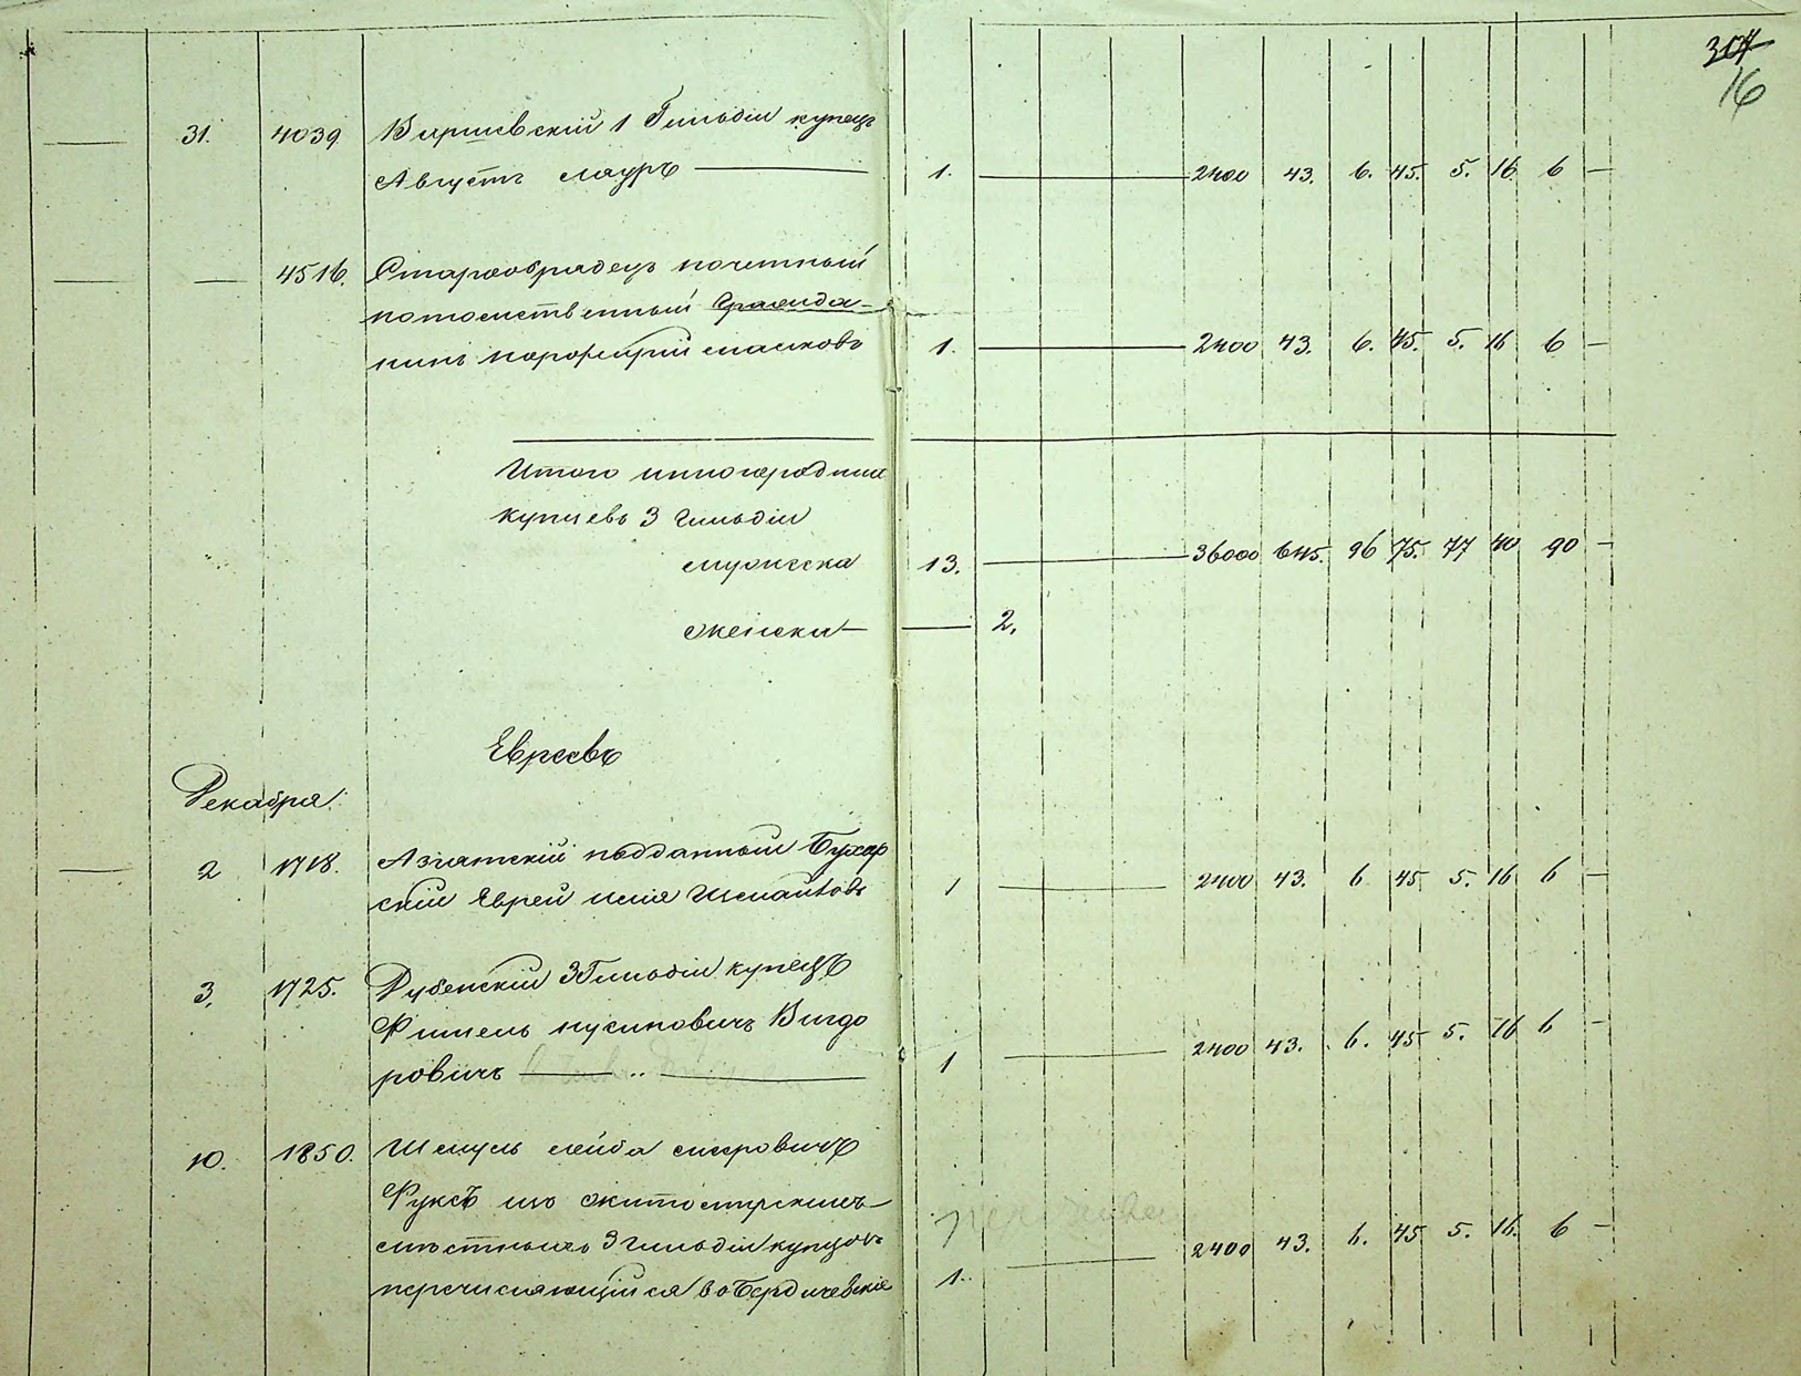 307
16
31. 4039. Варшавскій 1 Гильдіи купецъ
Августъ Мауръ 1. 2400 43. 6. 45. 5. 16 6
4516. Старообрядецъ почетный
потомственный Гражда-
нинъ Порфирій Масловъ 1. 2400 43. 6. 45. 5. 16 6
Итого иногородныхъ
купцевъ 3 Гильдіи
мужеска 13. 36000 645. 96 75. 77 40 90
женска 2.
Евреевъ
Декабря.
2 1718. Азіатскій подданный Бухар
скій Еврей 1 2400 43. 6 45 5. 16 6
3. 1725. Дубенскій 3 Гильдіи купецъ
Фишель Нусиновичъ Вигдо
ровичъ 1 2400 43. 6. 45 5. 16 6
10. 1850. Шмуль Лейба Мееровичъ
Фуксъ изъ Житомирскихъ
мѣстныхъ 3 Гильдіи купцовъ 2400 43. 6. 45 5. 16. 6
перечисляющійся во Бердичевскіе 1.